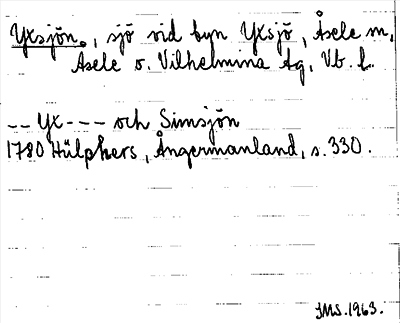 Yxsjön, sjö vid byn Yxsjö, Åsele m,
Åsele o. Vilhelmina tg, Vb. l.
-- Yx---- och Simsjön
1780 Hülphers, Ångermanland, s. 330.
JMS. 1963.